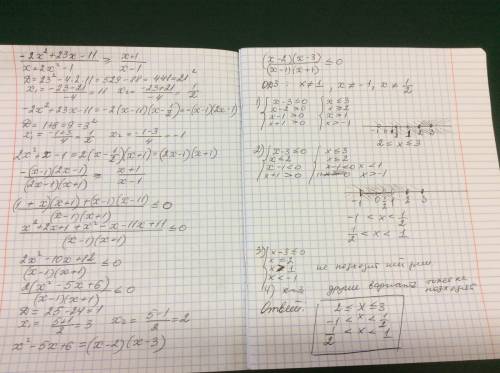 -2x²+23x-11 ≥ x+1
x+2x²-1 x-1
D=23²-4·2·11=529-88=441=21²
x₁=(-23-21)/-4=11 x₂=(-23+21)/-4=1/2
-2x²+23x-11=-2(x-11)(x-1/2)=-(x-11)(2x-1)
D=1+8=9=3²
x₁=(-1+3)/4=1/2 x₂=(-1-3)/4=-1
2x²+x-1=2(x-1/2)(x+1)=(2x-1)(x+1)
-(x-11)(2x-1) ≥ x+1
(2x-1)(x+1) x-1
(1+x)(x+1)+(x-1)(x-11) ≤0
(x-1)(x+1)
x²+2x+1+x²-x-11x+11 ≤0
(x-1)(x+1)
2x²-10x+12 ≤0
(x-1)(x+1)
2(x²-5x+6) ≤0
(x-1)(x+1)
D=25-24=1
x₁=(5+1)/2=3 x₂=(5-1)/2=2
x²-5x+6=(x-2)(x-3)
(x-2)(x-3) ≤0
(x-1)(x+1)
ОДЗ: x≠1, x≠-1, x≠1/2
1) x-3≤0 x≤3
x-2≥0 x≥2
x-1>0 x>1
x+1>0 x>-1
-1 1/2 1 2 3
2≤x≤3
2) x-3≤0 x≤3
x≤2 x≤2
x-1<0 x-1<0 x<1
x+1>0 x>-1
-1 1/2 1 2 3
-1<x<1/2
1/2<x<1
3) x-3≤0
x≥2
x>1
x<-1
не подходит
4) другие варианты тоже не подходят
Ответ:
2≤x≤3
-1<x<1/2
1/2<x<1